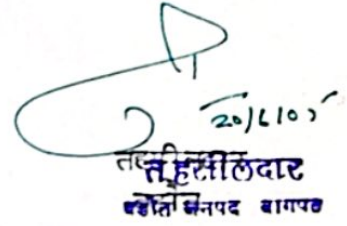 20/6/05
तहसीलदार
बडौत जनपद बागपत